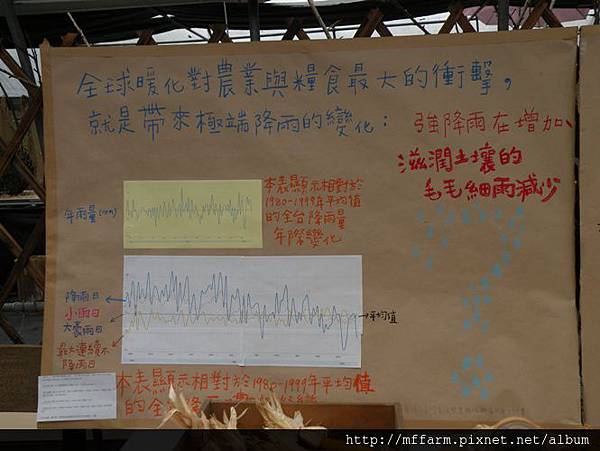 全球暖化對農業與糧食最大的衝擊，
就是帶來極端降雨的變化：
強降雨在增加、
滋潤土壤的
毛毛細雨減少
年雨量(mm)
本表顯示相對於
1980-1999年平均值
的全台降雨量
年際變化
降雨日
小雨日
大豪雨日
最大連續不
降雨日
平均值
本表顯示相對於1980-1999年平均值
的全
http://mffarm.pixnet.net/album